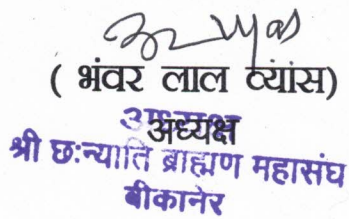 ( भंवर लाल व्यांस)
अध्यक्ष
अध्यक्ष
श्री छ:न्याति ब्राह्मण महासंघ
बीकानेर